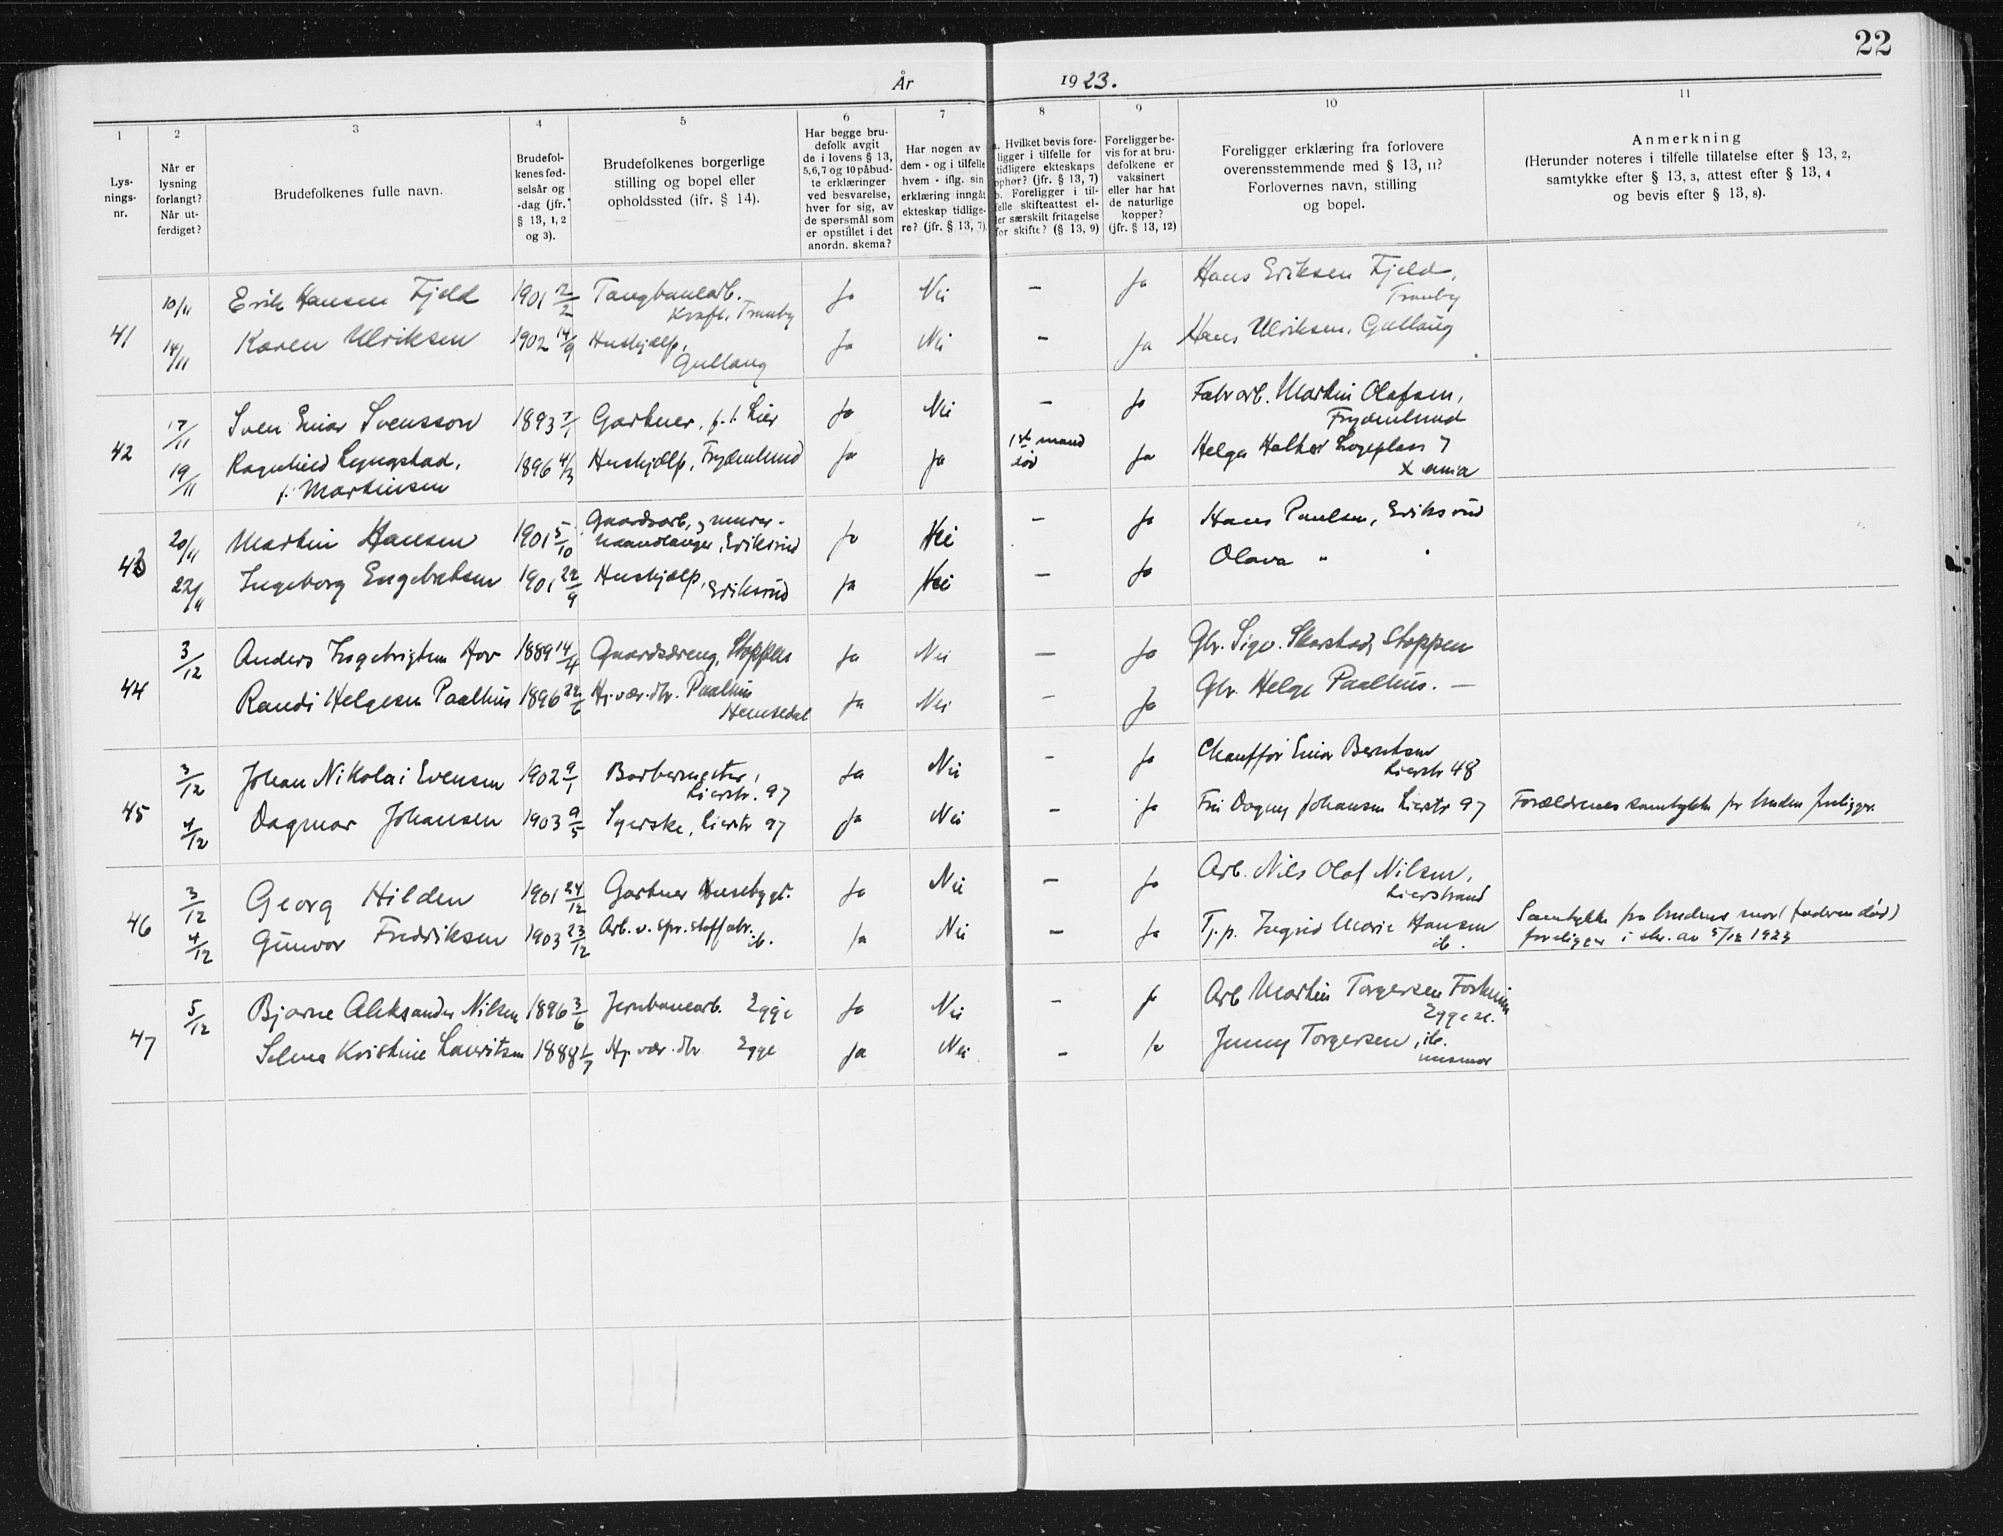 22
År 1923.
1 2 3 4 5 6 7 8 9 10 11
Lysningsnr.
Når er lysning forlangt? Når utferdiget?
Brudefolkenes fulle navn.
Brudefolkenes fødselsår og -dag (jfr. § 13, 1, 2 og 3).
Brudefolkenes borgerlige stilling og bopel eller opholdssted (ifr. § 14).
Har begge brudefolk avgit de i lovens § 13, 5, 6, 7 og 10 påbudte erklæringer ved besvarelse, hver for sig, av de spørsmål som er opstillet i det anordn. skema?
Har nogen av dem - og i tilfelle hvem - iflg. sin erklæring inngåt ekteskap tidligere? (jfr. § 13, 7).
a. Hvilket bevis foreligger i tilfelle for tidligere ekteskaps ophør? (jfr. § 13, 7) b. Foreligger i tilfelle skifteattest eller særskilt fritagelse for skifte? (§ 13, 9)
Foreligger bevis for at brudefolkene er vaksinert eller har hat de naturlige kopper? (jfr. § 13, 12)
Foreligger erklæring fra forlovere overensstemmende med § 13, 11? Forlovernes navn, stilling og bopel.
Anmerkning (Herunder noteres i tilfelle tillatelse efter § 13, 2, samtykke efter § 13, 3, attest efter § 13, 4 og bevis efter § 13, 8).
41 10/11 Erik Hansen Fjeld 1901 2/2 Tangbanearb. Kraft. Tranby Ja Nei — Ja Hans Eriksen Fjeld, Tranby
14/11 Karen Ulriksen 1902 14/9 Hushjælp, Gullaug Ja Nei — Ja Hans Ulriksen, Gullaug
42 17/11 Sven Einar Svensson 1893 7/1 Gartner, p.t. Lier Ja Nei — Ja Fabr.arb. Martin Olafsen, Frydenlund
19/11 Ragnhild Lyngstad, f. Martinsen 1896 4/3 Hushjælp, Frydenlund Ja Ja 1ste mand død Ja Helga Halker Logeplass 7 X ania
43 20/11 Martin Hansen 1901 5/10 Gaardsarb. og murerhaandlanger, Eriksrud Ja Nei — Ja Hans Paulsen, Eriksrud
22/11 Ingeborg Engebretsen 1901 22/9 Hushjælp, Eriksrud Ja Nei — Ja Olava " "
44 3/12 Anders Ingebrigtsen Hov 1889 14/4 Gaardsdreng, Stoppen Ja Nei — Ja Gbr. Sigv. Skarstad, Stoppen
Randi Helgesen Paalhus 1896 22/6 Hj. vær. dtr. Paalhus Hemsedal Ja Nei — Ja Gbr. Helge Paalhus. —
45 3/12 Johan Nikolai Evensen 1902 9/1 Barbermester, Lierstr. 97 Ja Nei — Ja Chauffør Einar Berntsen Lierstr 48
4/12 Dagmar Johansen 1903 9/5 Syerske, Lierstr 97 Ja Nei — Ja Fru Dagny Johansen Lierstr 97 Forældrenes samtykke for bruden foreligger.
46 3/12 Georg Hilden 1901 24/12 Gartner Husebygt. Ja Nei — Ja Arb. Nils Olaf Nilsen, Lierstrand
4/12 Gunvor Fredriksen 1903 23/12 Arb. v. spr.stoffabr. ib. Ja Nei — Ja Tj.p. Ingrid Marie Hansen ib. Samtykke fra brudens mor (faderen død) foreligger i skr. av 5/12 1923
47 5/12 Bjarne Aleksander Nilsen 1896 3/6 Jernbanearb. Egge Ja Nei — Ja Arb Martin Torgersen Foskum Egge
Selma Kristine Lauritsen 1888 1/7 Hj. vær. dtr Egge Ja Nei — Ja Jenny Torgersen, ib. husmor